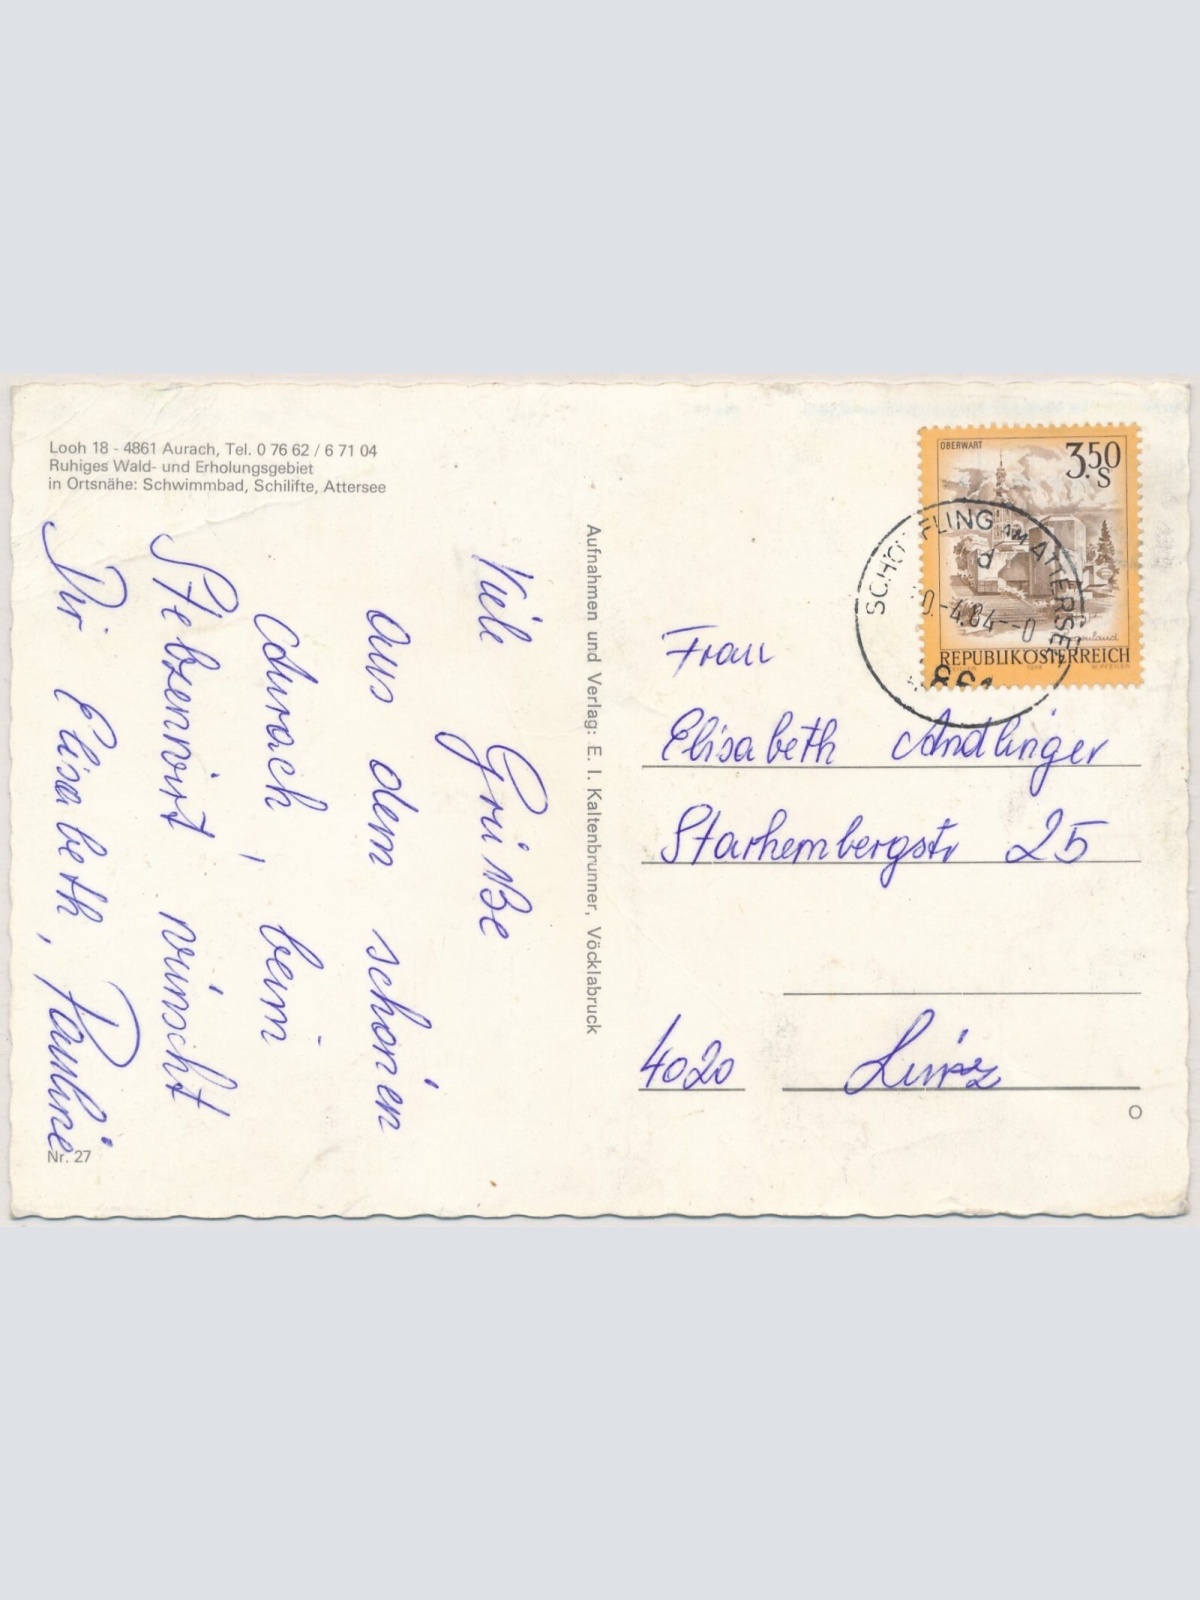 Looh 18 - 4861 Aurach, Tel. 0 76 62 / 6 71 04
Ruhiges Wald- und Erholungsgebiet
in Ortsnähe: Schwimmbad, Schilifte, Attersee
Viele Grüße
aus dem schönen
Aurach, beim
Stelzenwirt wünscht
Ihr Elisabeth, Pauline
Nr. 27
Aufnahmen und Verlag: E. I. Kaltenbrunner, Vöcklabruck
OBERWART
3.50
S
REPUBLIK ÖSTERREICH
AM ATTERSEE
d
Frau
Elisabeth Andlinger
Starhembergstr 25
4020 Linz